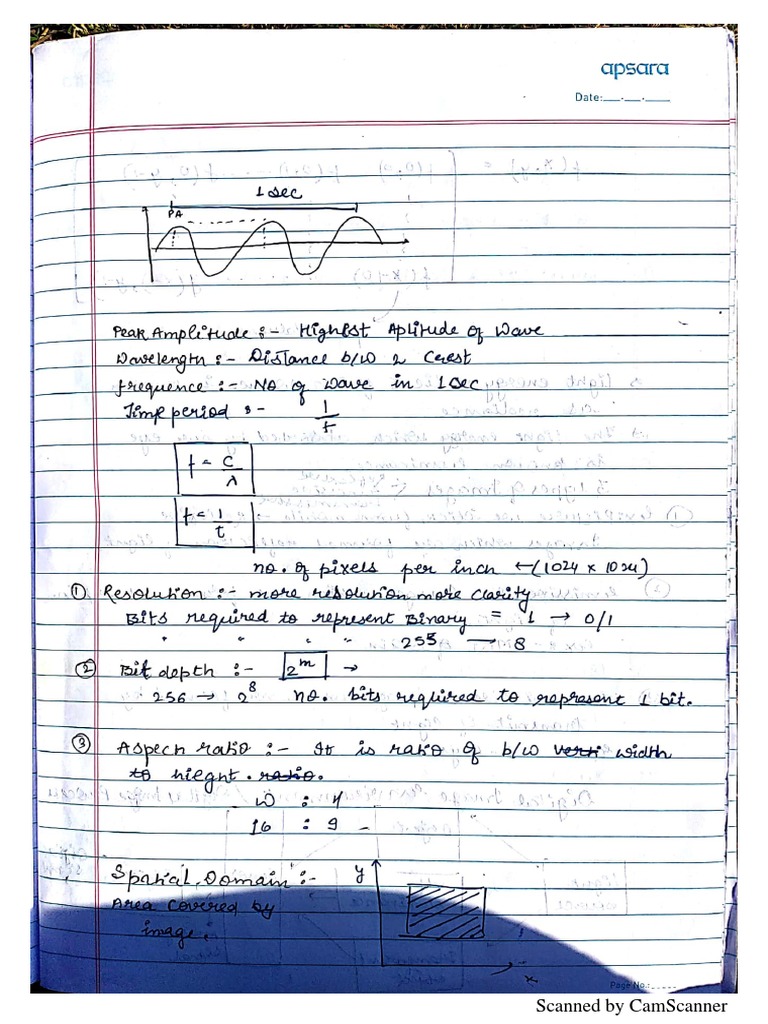 apsara
Date:__.__.____
1 sec
PA
Peak Amplitude :- Highest Aplitude of Wave
Wavelength :- Distance b/w 2 Crest
frequence :- No of wave in 1 sec
Time period :- 1/t
f = C/λ
f = 1/t
no. of pixels per inch ← (1024 x 1024)
① Resolution :- more resolution more clarity
Bits required to represent Binary = 1 → 0/1
" " " " 255 → 8
② Bit depth :- 2^m →
256 → 2^8 no. bits required to represent 1 bit.
③ Aspech ratio :- It is ratio of b/w verti width
to hieght. ratio.
W : H
16 : 9 -
Spatial Domain :-
y
Area covered by
image.
x
Page No.:
Scanned by CamScanner